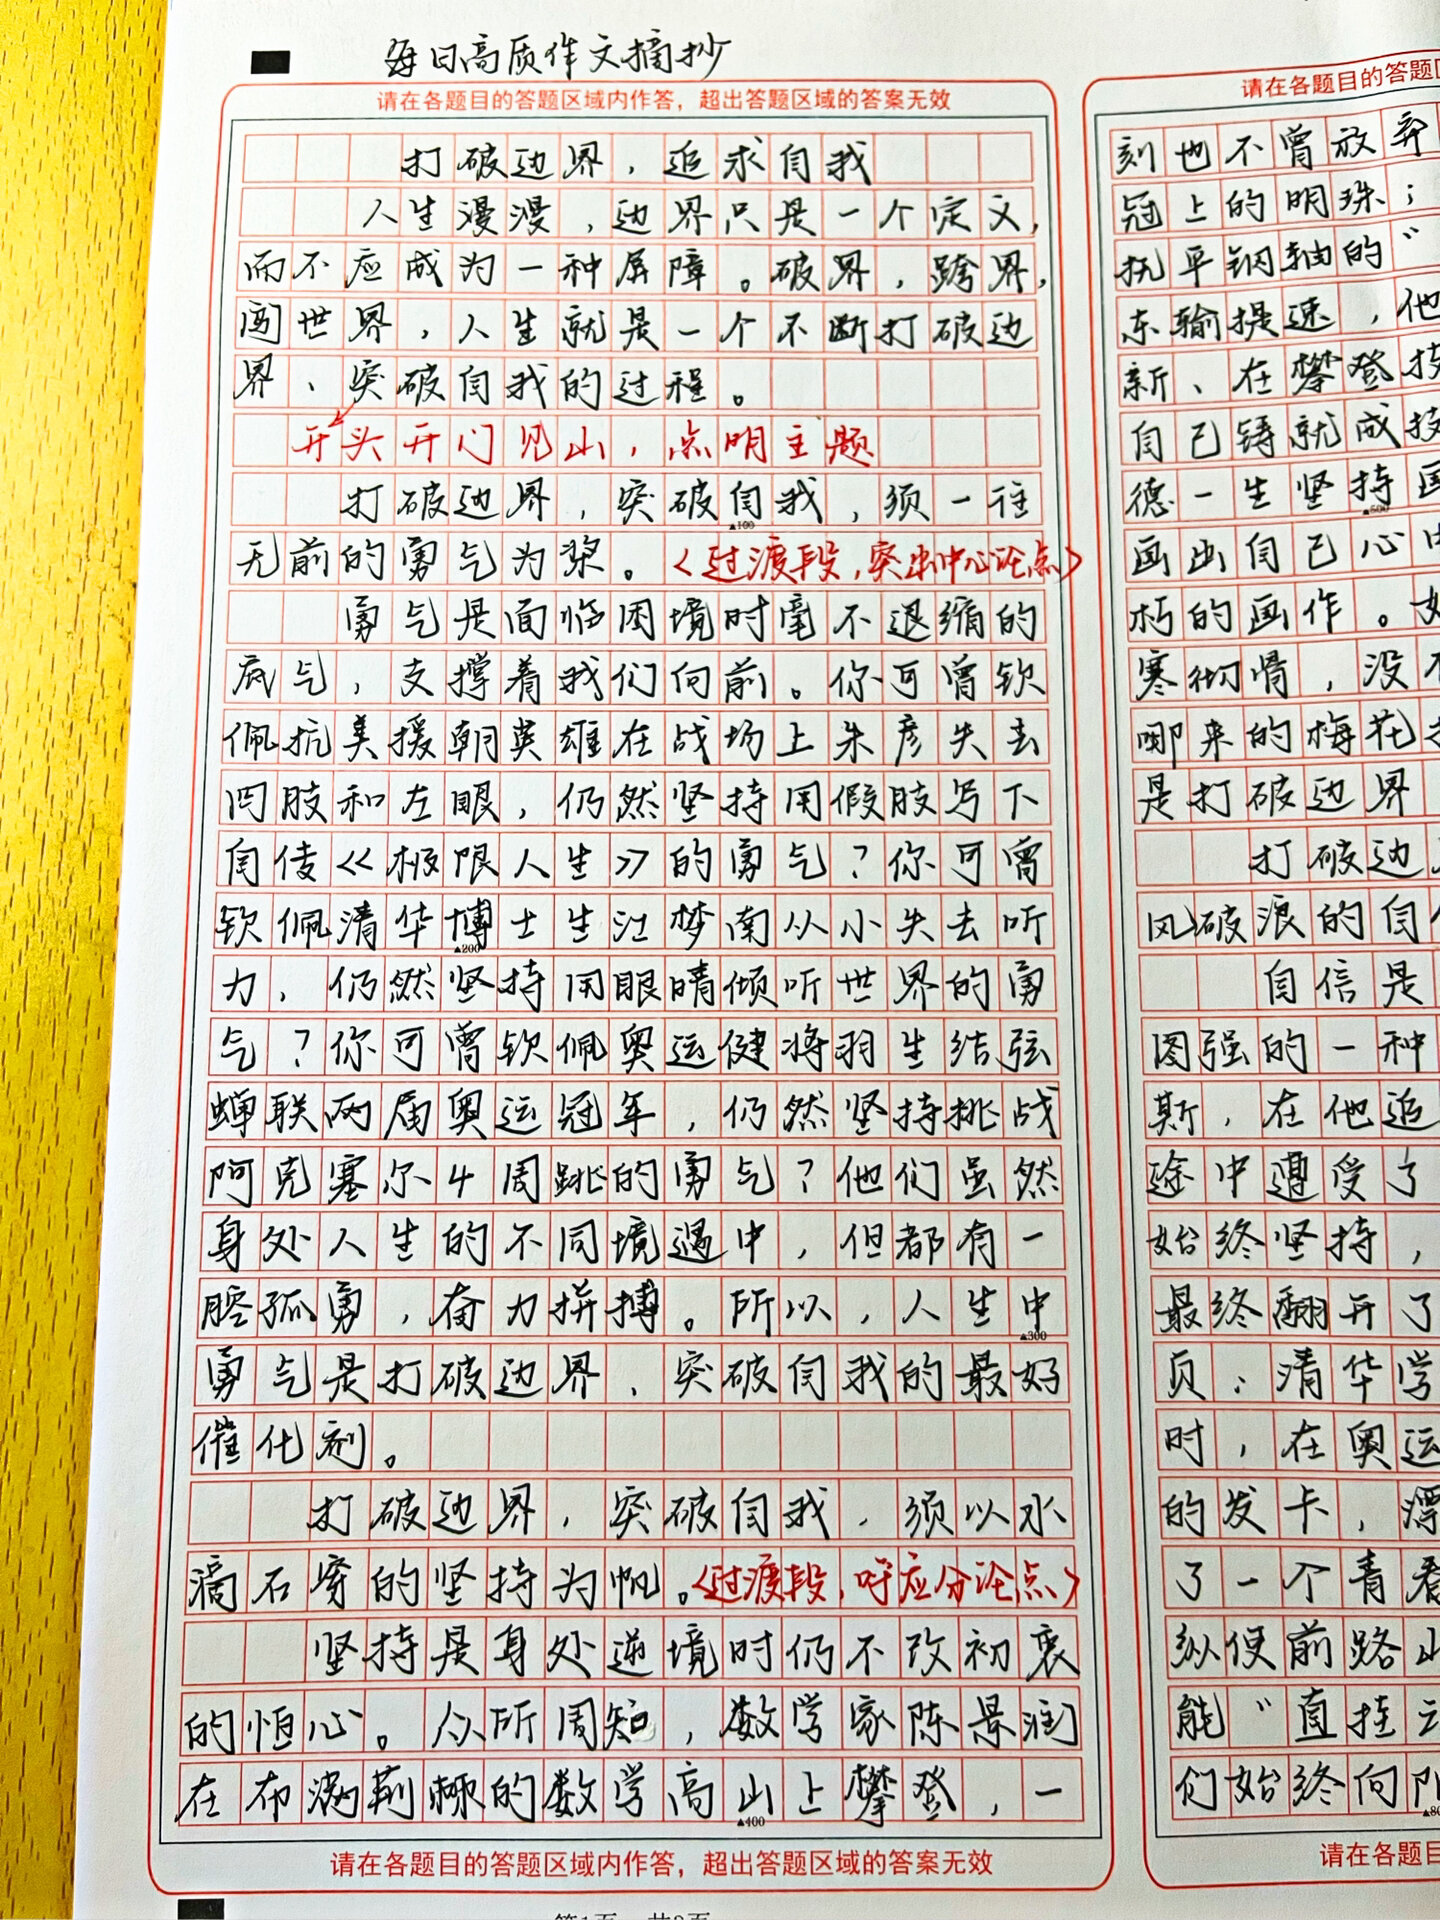 每日高质作文摘抄
请在各题目的答题区域内作答，超出答题区域的答案无效
打破边界，追求自我
人生漫漫，边界只是一个定义，
而不应成为一种屏障。破界，跨界，
闯世界，人生就是一个不断打破边
界、突破自我的过程。
开头开门见山，点明主题
打破边界，突破自我，须一往
无前的勇气为桨。<过渡段，突出中心论点>
勇气是面临困境时毫不退缩的
底气，支撑着我们向前。你可曾钦
佩抗美援朝英雄在战场上朱彦失去
四肢和左眼，仍然坚持用假肢写下
自传《极限人生》的勇气？你可曾
钦佩清华博士生江梦南从小失去听
力，仍然坚持用眼睛倾听世界的勇
气？你可曾钦佩奥运健将羽生结弦
蝉联两届奥运冠军，仍然坚持挑战
阿克塞尔4周跳的勇气？他们虽然
身处人生的不同境遇中，但都有一
腔孤勇，奋力拼搏。所以，人生中
勇气是打破边界、突破自我的最好
催化剂。
打破边界，突破自我，须以水
滴石穿的坚持为帆。<过渡段，呼应分论点>
坚持是身处逆境时仍不改初衷
的恒心。众所周知，数学家陈景润
在布满荆棘的数学高山上攀登，一
▲100
▲200
▲300
▲400
请在各题目的答题区域内作答，超出答题区域的答案无效
请在各题目的答题区
刻也不曾放弃
冠上的明珠；
抚平钢轴的“
东输提速，他
新、在攀登技
自己铸就成技
德一生坚持画
画出自己心中
朽的画作。
寒彻骨，没有
哪来的梅花
是打破边界
打破边
风破浪的自信
自信是
图强的一种
斯，在他追
途中遭受了
始终坚持，
最终翻开了
页；清华学
时，在奥运
的发卡，漂
了一个青春
纵使前路山
能“直挂云
们始终向阳
请在各题目